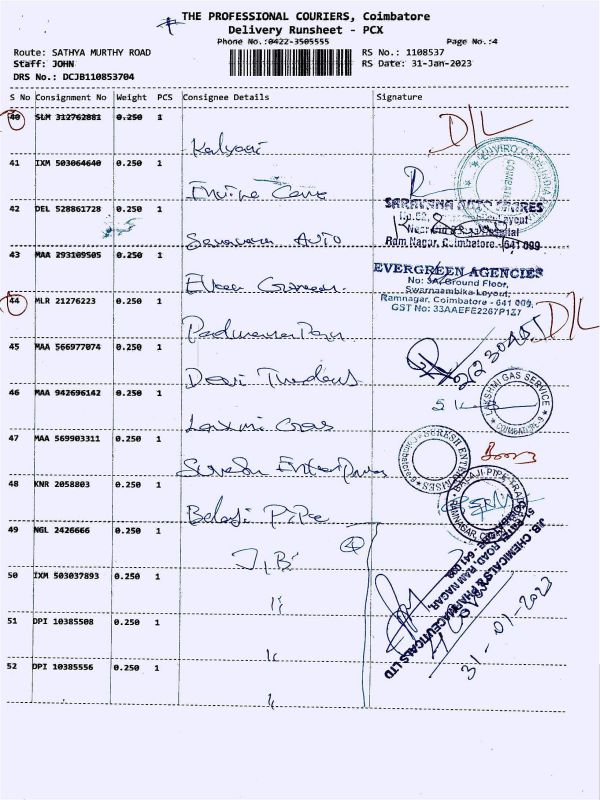 THE PROFESSIONAL COURIERS, Coimbatore
Delivery Runsheet - PCX
Phone No.:0422-3505555
Page No.:4
Route: SATHYA MURTHY ROAD
RS No.: 1108537
Staff: JOHN
RS Date: 31-Jan-2023
DRS No.: DCJB110853704
S No Consignment No Weight PCS Consignee Details Signature
40 SLM 312762881 0.250 1
D/L
Kalyani
41 IXM 503064640 0.250 1
ENVIRO CARE INDIA
COIMBATORE
42 DEL 528861728 0.250 1
SARAVANA AUTO SPARES
Ram Nagar, Coimbatore - 641 009
Saravana AUTO
43 MAA 293109505 0.250 1
EVERGREEN AGENCIES
No: 3A, Ground Floor,
Swarnaambike Layout,
Ramnagar, Coimbatore - 641 009,
GST No: 33AAEFE2267P1Z7
Ever Green
44 MLR 21276223 0.250 1
D/L
45 MAA 566977074 0.250 1
Devi
46 MAA 942696142 0.250 1
LAKSHMI GAS SERVICE
COIMBATORE-9
Laxmi Gas
47 MAA 569903311 0.250 1
SURESH ENTERPRISES
Coimbatore-9
Suresh Enterprises
48 KNR 2058803 0.250 1
BALAJI PIPE TRADERS
Balaji Pipe
49 NGL 2426666 0.250 1
J.B. CHEMICALS & PHARMACEUTICALS LTD
RAM NAGAR,
J,B
4
50 IXM 503037893 0.250 1
"
51 DPI 10385508 0.250 1
"
31-01-2023
52 DPI 10385556 0.250 1
"